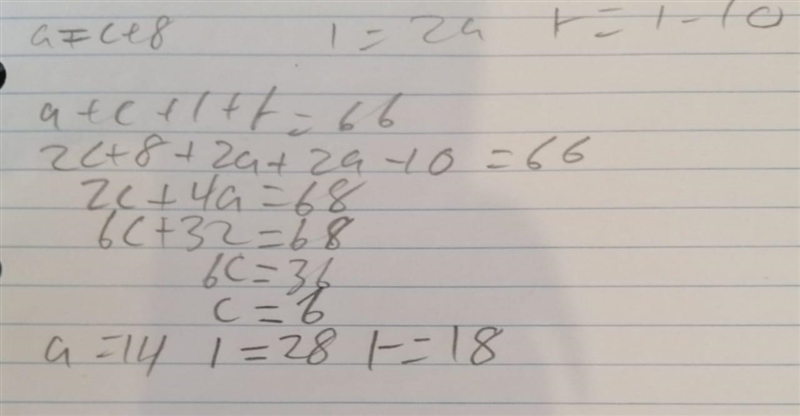 a=c+8 l=2a r=l-10
a+c+l+r=66
2c+8+2a+2a-10=66
2c+4a=68
6c+32=68
6c=36
c=6
a=14 l=28 r=18